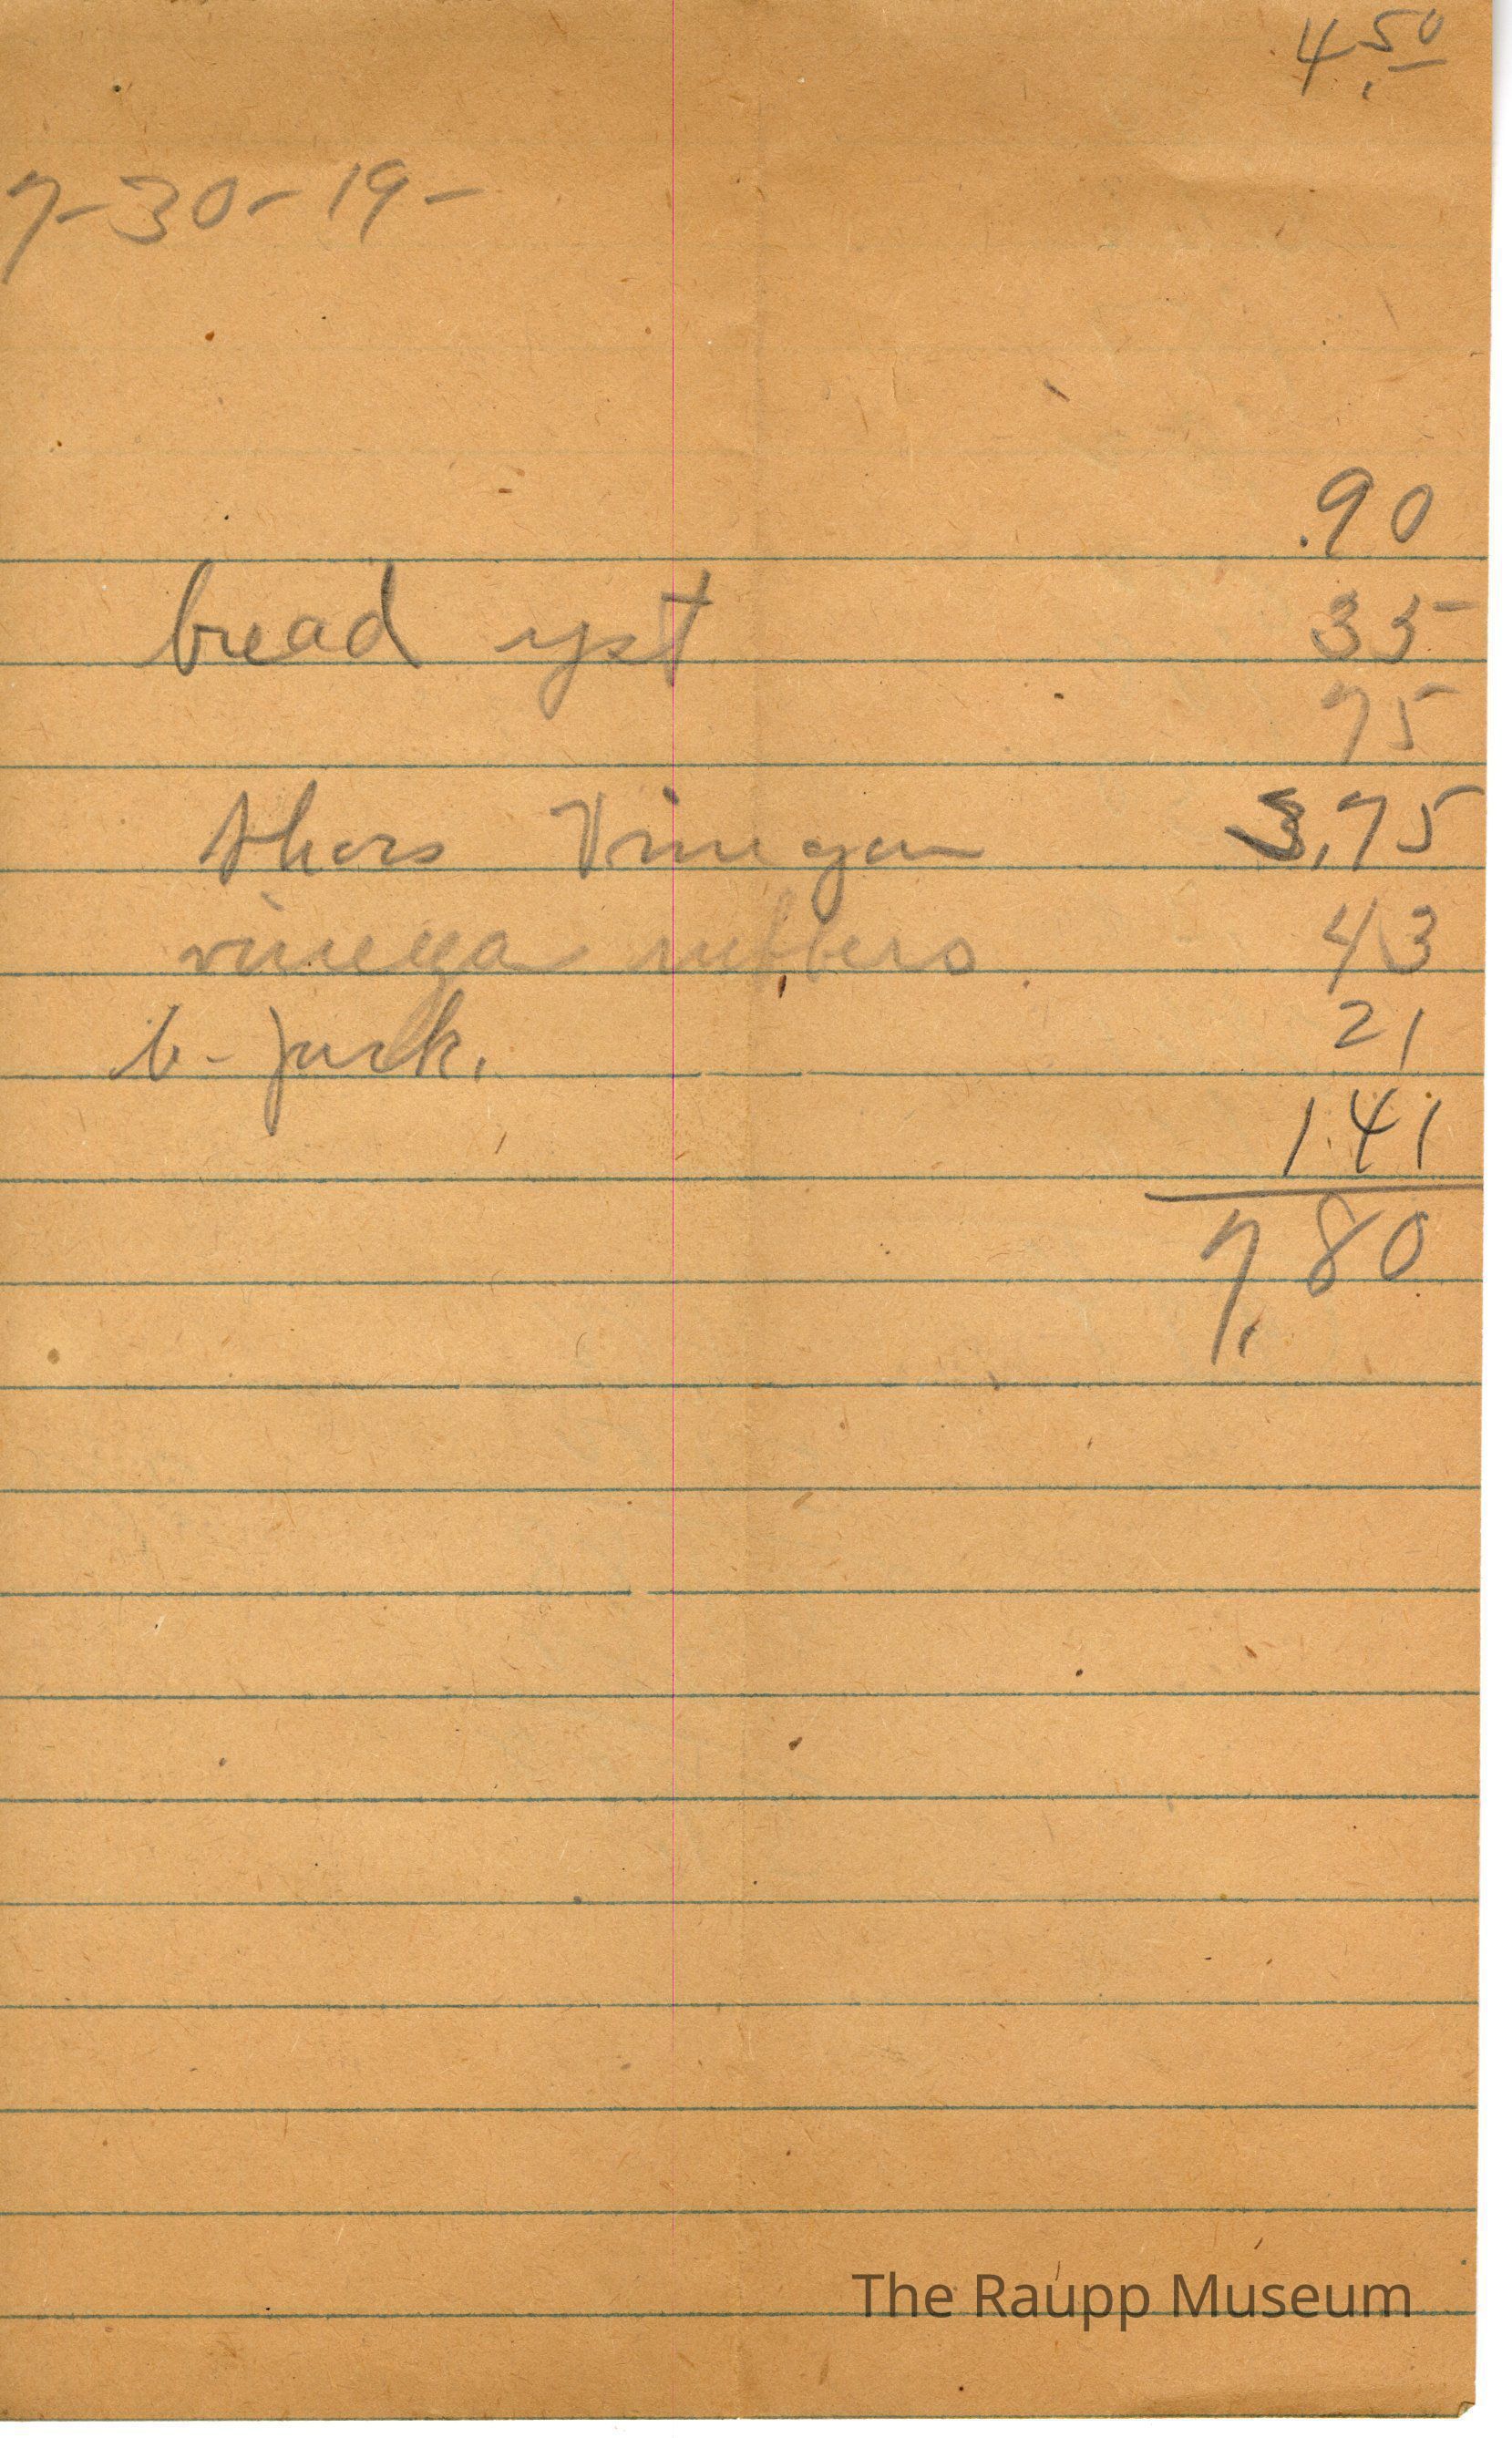 4.50
7-30-19-
.90
bread yst 35
75
shoes Vinegar 3.75
vinegar rubbers 43
b- pork. 21
1.41
7.80
The Raupp Museum